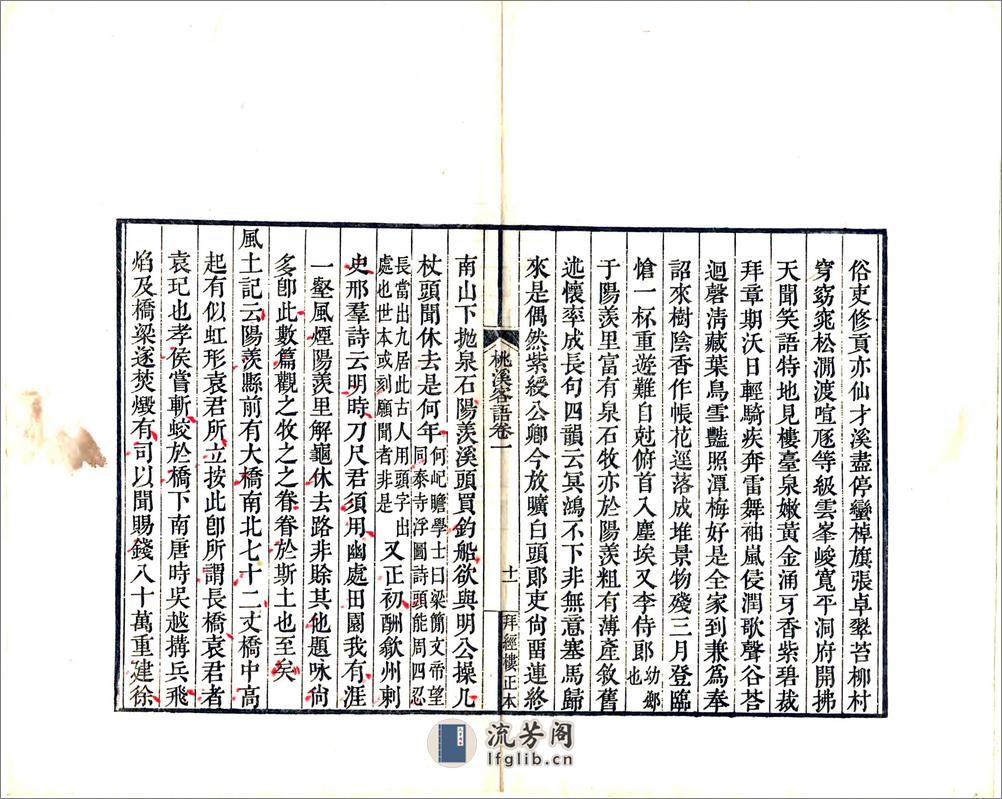 俗吏修貢亦仙才溪盡停蠻棹旗張卓翠苔柳村
穿窈窕松澗渡喧豗等級雲峯峻寬平洞府開拂
天聞笑語特地見樓臺泉嫩黃金涌牙香紫碧裁
拜章期沃日輕騎疾奔雷舞袖嵐侵潤歌聲谷荅
迴磬清藏葉鳥雪豔照潭梅好是全家到兼爲奉
詔來樹陰香作帳花逕落成堆景物殘三月登臨
愴一杯重遊難自尅俯首入塵埃又李侍郎幼鄰也
于陽羨里富有泉石牧亦於陽羨粗有薄產敘舊
述懷率成長句四韻云冥鴻不下非無意塞馬歸
來是偶然紫綬公卿今放曠白頭郎吏尙畱連終
桃溪客語卷一
十一
拜經樓正本
南山下抛泉石陽羨溪頭買釣船欲與明公操几
杖頭聞休去是何年何屺瞻學士曰梁簡文帝望同泰寺浮圖詩頭能周四忍
長當出九居此古人用頭字出處也世本或刻願聞者非是又正初酬歙州刺
史邢羣詩云明時刀尺君須用幽處田園我有涯
一壑風煙陽羨里解龜休去路非賖其他題咏尙
多卽此數篇觀之牧之之眷眷於斯土也至矣
風土記云陽羨縣前有大橋南北七十二丈橋中高
起有似虹形袁君所立按此卽所謂長橋袁君者
袁玘也孝侯嘗斬蛟於橋下南唐時吳越搆兵飛
焰及橋梁遂焚燬有司以聞賜錢八十萬重建徐
流芳阁
lfglib.cn